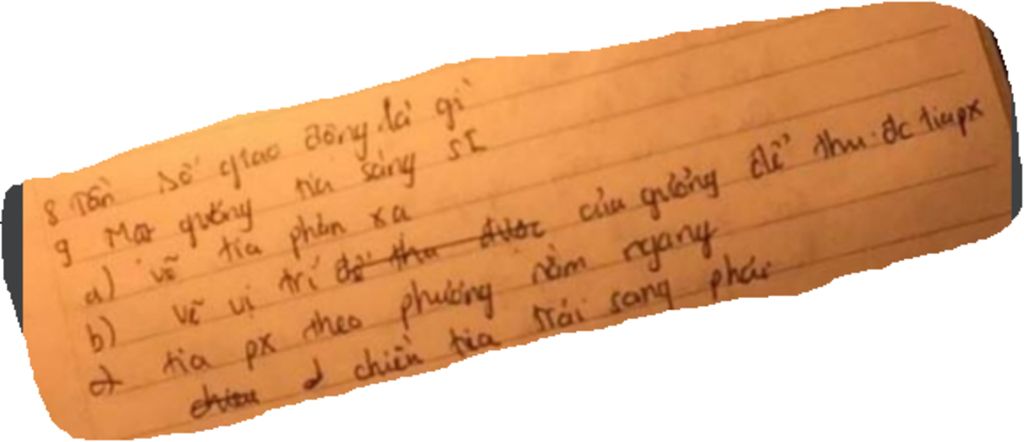 8 Tần số giao động là gì
9 Mo gường tia sáng SI
a) vẽ tia phản xạ
b) vẽ vị trí để thu được của gường để thu đc tiapx
tia px theo phương nằm ngang
chiều chiến tia trái sang phải